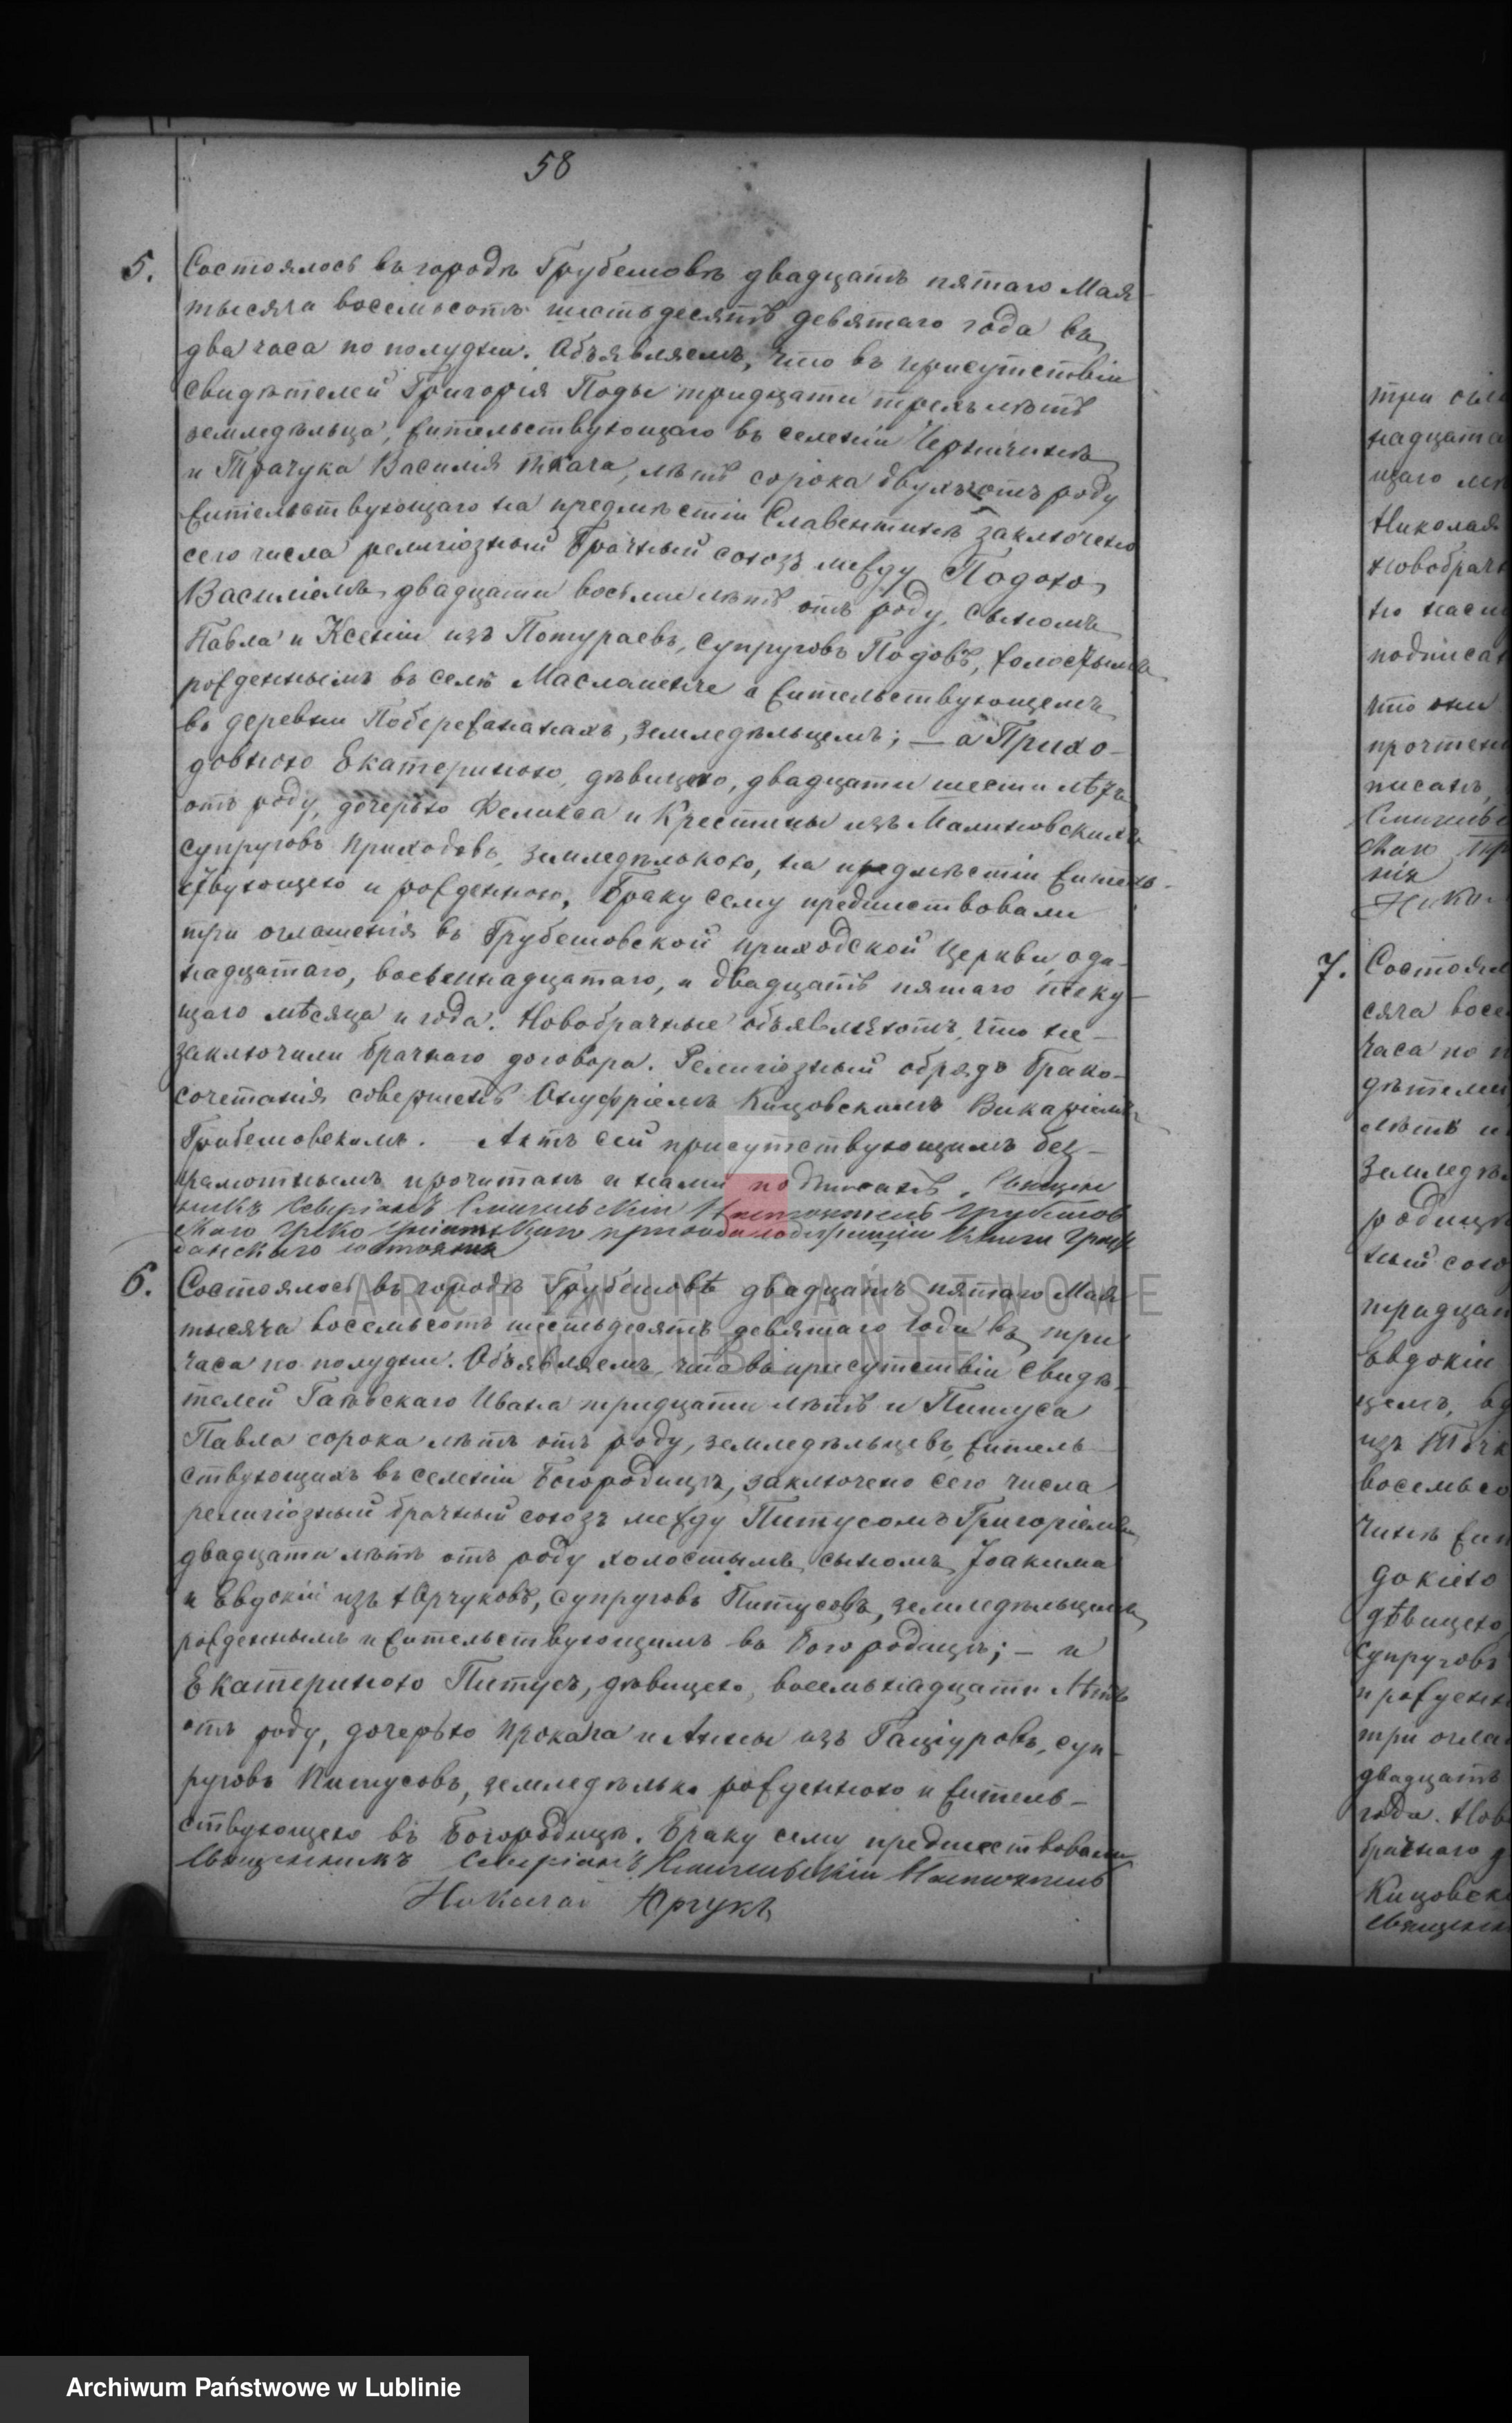 58
5. Состоялось въ городѣ Грубешовѣ двадцать пятаго Мая
тысяча восемьсотъ шестьдесятъ девятаго года въ
два часа по полудни. Объявляемъ, что въ присутствіи
свидѣтелей Григорія Поды тридцати трехъ лѣтъ
земледѣльца, жительствующаго въ селеніи Чернічинѣ
и Трачука Василія ткача, лѣтъ сорока двухъ отъ роду
жительствующаго на предмѣстіи Славентинѣ заключено
сего числа религіозный брачный союзъ между Подою
Василіемъ, двадцати восьми лѣтъ отъ роду, сыномъ
Павла и Ксеніи изъ Потураевъ, супруговъ Подовъ, холостымъ
рожденнымъ въ селѣ Масломенче а жительствующемъ
въ деревни Побережанахъ, земледѣльцемъ; — а Прихо-
довною Екатериною, дѣвицею, двадцати шести лѣтъ
отъ роду, дочерью Феликса и Крестины изъ Малиновскихъ
супруговъ Приходовъ, земледѣлкою, на предмѣстіи жительс-
твующею и рожденною, Браку сему предшествовали
три оглашенія въ Грубешовской приходской Церкви, оди-
надцатаго, восьмнадцатаго, и двадцать пятаго теку-
щаго мѣсяца и года. Новобрачные объявляютъ, что не
заключили брачнаго договора. Религіозный обрядъ брако-
сочетанія совершенъ Онуфріемъ Кицовскимъ Викаріемъ
Грубешовскимъ. — Актъ сей присутствующимъ без-
грамотнымъ прочитанъ и нами подписанъ. Священ
никъ Северіанъ Настоятель Грубешов
скаго Греко Уніатскаго прихода Книги Граж
данскаго состоянія
6. Состоялось въ городѣ Грубешовѣ двадцать пятаго Мая
тысяча восемьсотъ шестьдесятъ девятаго года въ три
часа по полудни. Объявляемъ, что въ присутствіи Свидѣ-
телей Гаевскаго Ивана тридцати лѣтъ и Питуса
Павла сорока лѣтъ отъ роду, земледѣльцевъ, житель-
ствующихъ въ селеніи Богородицѣ, заключено сего числа
религіозный брачный союзъ между Питусомъ Григоріемъ
двадцати лѣтъ отъ роду холостымъ, сыномъ Іоакима
и Евдокіи изъ Юрчуковъ, супруговъ Питусовъ, земледѣльцемъ
рожденнымъ и жительствующимъ въ Богородицѣ; — и
Екатериною Питусъ, дѣвицею, восемьнадцати лѣтъ
отъ роду, дочерью Прокопа и Анны изъ суп-
руговъ Питусовъ, земледѣлька рожденною и житель-
ствующею въ Богородицѣ. Браку сему предшествовали
Священникъ Северіанъ Настоятель
Николай Юрчукъ
три
надцата
щаго
Николая
новобрачн
но
подписа
что они
прочтен
писанъ,
7. Состоял
сяча восе
часа по п
дѣтелей
лѣтъ и
земледѣ
родицѣ
ный союз
тридцат
Евдокіи
цемъ, вд
изъ
восемьсо
чинѣ жит
докіею
дѣвицею
супруговъ
и рожденн
три огла
двадцать
года. Нов
брачнаго д
Кицовск
Священн
ARCHIWUM PAŃSTWOWE
W LUBLINIE
Archiwum Państwowe w Lublinie